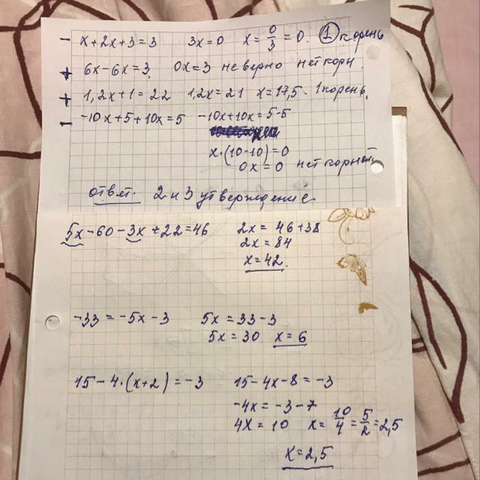 - x+2x+3=3 3x=0 x=0/3=0. ① корень
+ 6x-6x=3. 0x=3 не верно нет корн
+ 1,2x+1=22 1,2x=21 x=17,5. 1 корень.
- -10x+5+10x=5 -10x+10x=5-5
x·(10-10)=0
0x=0 нет корней
ответ 2 и 3 утверждение
5x-60-3x+22=46 2x=46+38
2x=84
x=42.
-33=-5x-3 5x=33-3
5x=30 x=6
15-4·(x+2)=-3 15-4x-8=-3
-4x=-3-7
4x=10 x=10/4=5/2=2,5
x=2,5